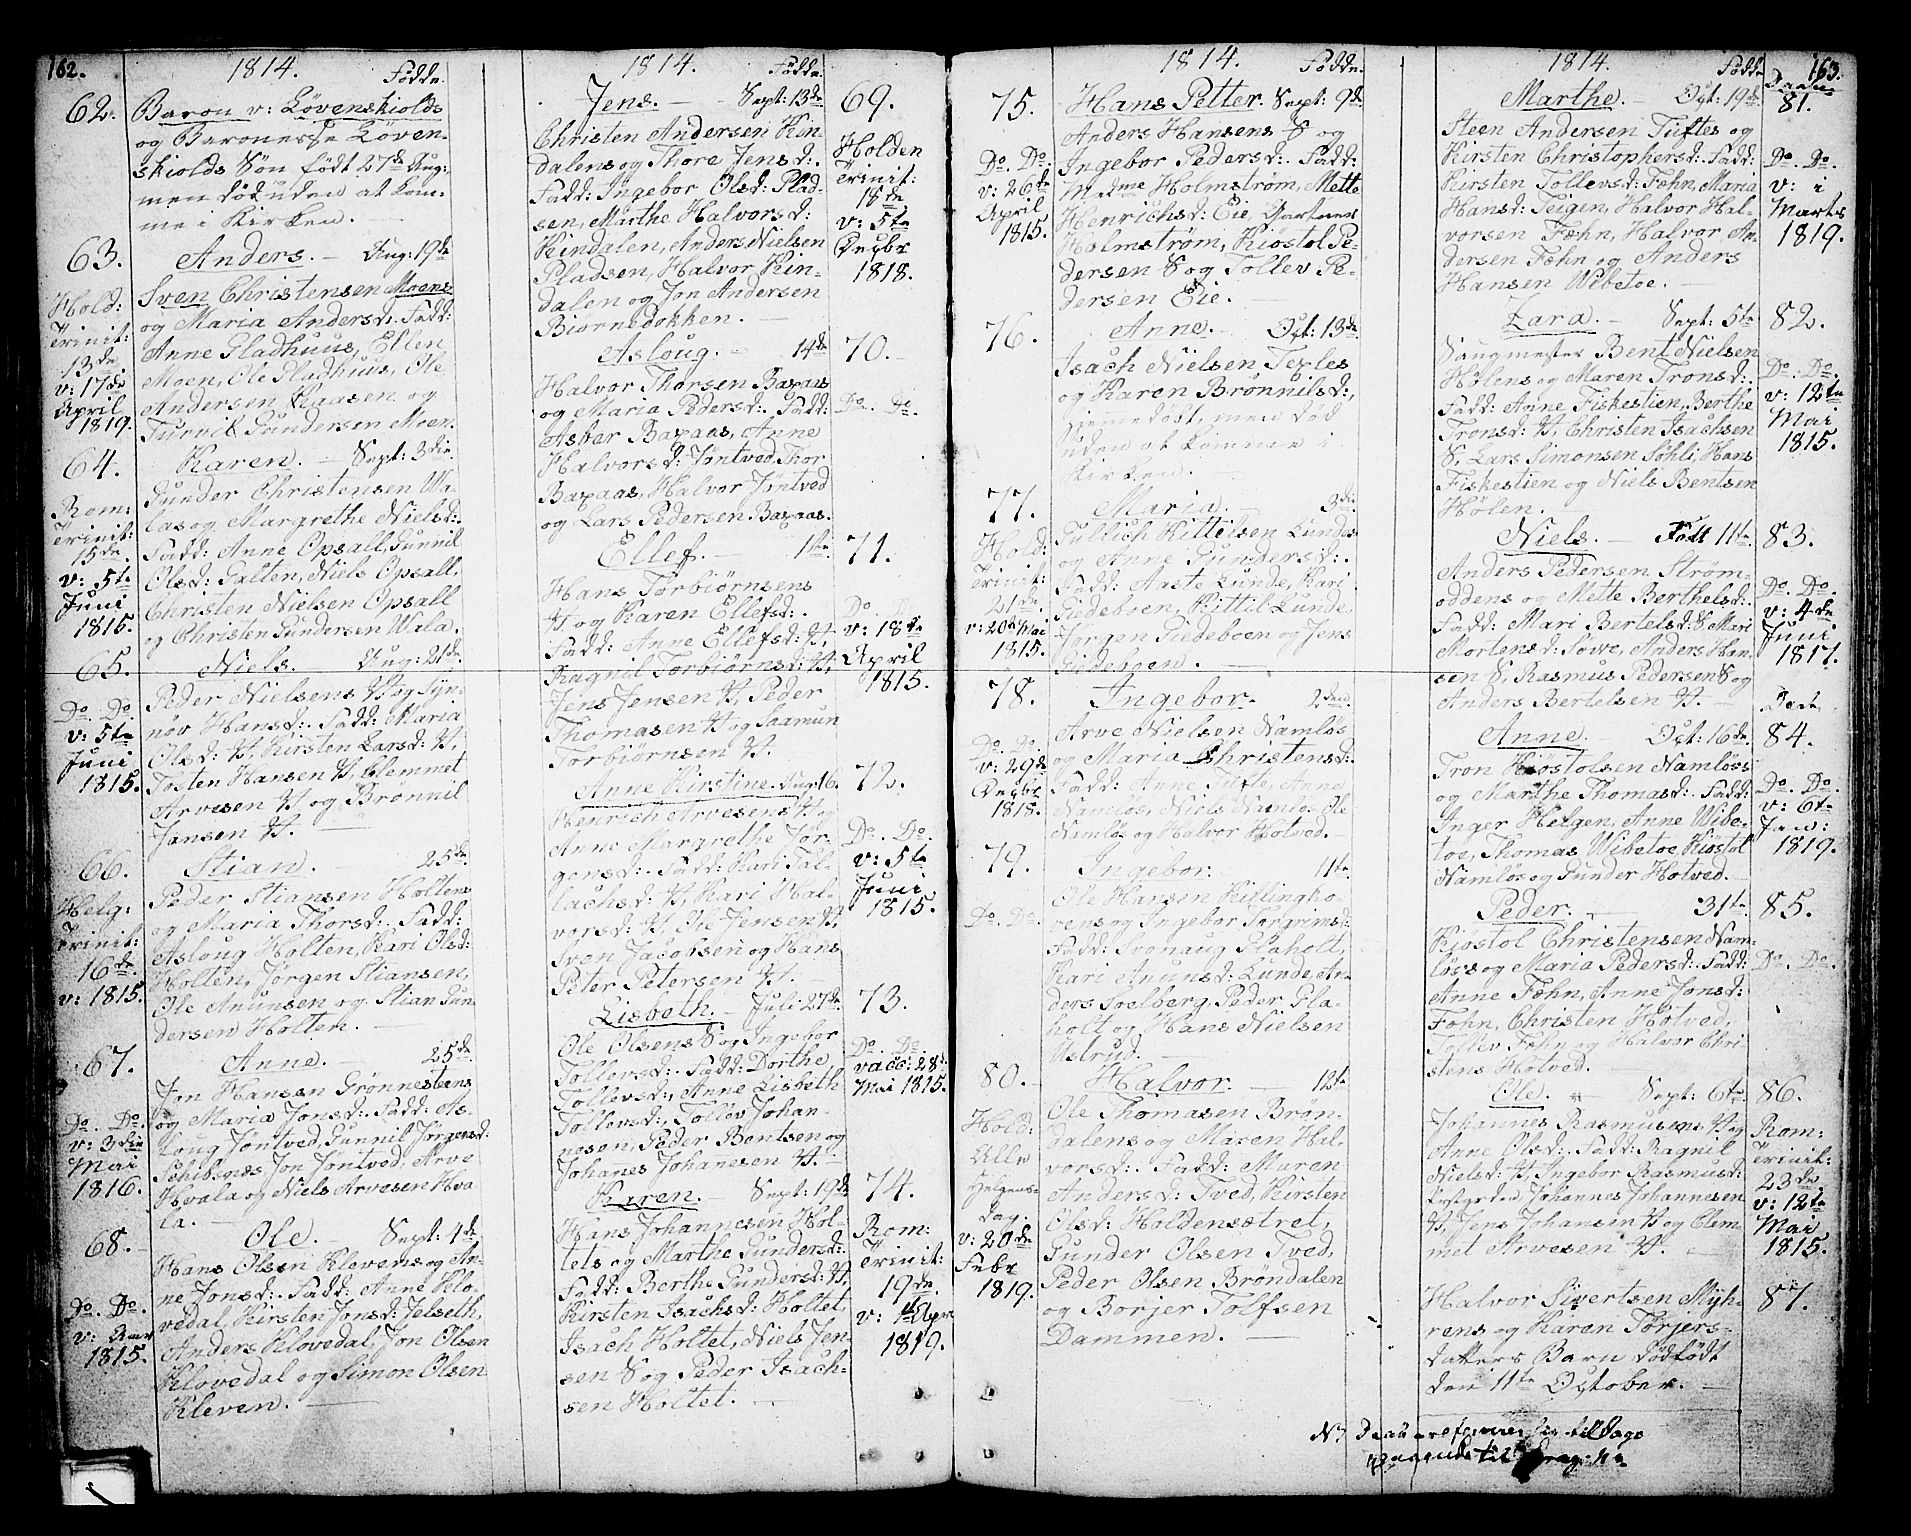 162.
1814.
Fødde.
62.
Baron v: Løvenskiolds
og Baronesse Løven-
skiolds Søn født 27de Aug:
men død uden at kom-
me i Kirken.
63.
Anders. - Aug: 19de
Hold:
Trinit:
13de
v: 17de
April
1819.
Sven Christensen Moens
og Maria Andersd: Fadd:
Anne Gladhuus, Ellen
Moen, Ole Gladhuus, Ole
Andersen Klaasen og
Gundersen Moen.
64.
Karen. - Sept: 3die
Rom:
Trinit:
15de
v: 5te
Juni
1815.
Gunder Christensen Wa-
las og Margrethe Nielsd:
Fadd: Anne Opsall, Gunnil
Olsd: Galten, Niels Opsall,
Christen Nielsen Opsall
og Christen Gundersen Wala.
65.
Niels. Aug: 21de
Do. Do.
v: 5te
Juni
1815.
Peder Nielsens H og Syn-
nøv Hansd: Fadd: Maria
Olsd: H, Kirsten Larsd: H,
Tosten Hansen H, Clemmet
Arvesen H og Brønnil
Jansen H.
66.
Stian. 25de
Helg:
Trinit:
16de
v: 1815.
Peder Stiansen Holtens
og Maria Thorsd: Fadd:
Asloug Holten, Kari Olsd:
Holten, Jørgen Stiansen,
Ole Anunsen og Stian Gun-
dersen Holten.
67.
Anne. - 25de
Do. Do.
v: 3die
Mai
1816.
Jon Hansen Grønnesteens
og Maria Jonsd: Fadd: As-
loug Jøntved, Gunnil Jørgensd:
Schibsnæs Jon Jøntved, Arve
Hvala og Niels Arvesen Hva-
la.
68.
Ole. - Sept: 4de
Do. Do.
v: Aar
1815.
Hans Olsen Klevens og An-
ne Jonsd: Fadd: Anne Klo-
vedal, Kirsten Jonsd: Jelseth,
Anders Klovedal, Jon Olsen
Klovedal og Simon Olsen
Kleven.
1814.
Fødde.
Jens. - Sept: 13de
69.
Christen Andersen Kin-
dalens og Thore Jensd:
Fadd: Ingebor Olsd: Plad-
sen, Marthe Halvorsd:
Kindalen, Anders Nielsen
Pladsen, Halvor Kin-
dalen og Jon Andersen
Biørnedokken.
Holden
Trinit:
18de
v: 5te
Decbr
1818.
Asloug. - 14de
70.
Halvor Thorsen Baxaas
og Maria Pedersd: Fadd:
Asbør Baxaas, Anne
Halvorsd: Jøntved, Thor
Baxaas, Halvor Jøntved
og Lars Pedersen Baxaas.
Do. Do.
Ellef. - 1ste
71.
Hans Torbiørnsens
H og Karen Ellefsd:
Fadd: Anne Ellefsd: H,
Ragnil Torbiørnsd: H,
Jens Jensen H, Peder
Thomasen H og Saamun
Torbiørnsen H.
Do. Do.
v: 18de
April
1815.
Anne Kirstine. Aug: 16.
72.
Henrich Arvesens H og
Anne Margrethe Jør-
gensd: Fadd: Kari Fal-
lachsd: H, Kari Hal-
vorsd: H, Ole Jensen H,
Sven Jacobsen og Hans
Peter Petersen H.
Do. Do.
v: 5te
Juni
1815.
Lisbeth. - Juli 27de
73.
Ole Olsens S og Ingebor
Tollevsd: Fadd: Dorthe
Tollevsd:, Anne Lisbeth
Tollevsd:, Tollev Johan-
nesen, Peder Bentsen og
Johanes Johanesen H.
Do. Do.
vacc: 28de
Mai 1815.
Karen. - Sept: 19de
74.
Hans Johannesen Hol-
tets og Marthe Gundersd:
Fadd: Berthe Gundersd: H,
Kirsten Isachsd: Holtet,
Isach Holtet, Niels Jen-
sen S og Peder Isach-
sen Holtet.
Rom:
Trinit:
19de
v: Apr
1819.
1814.
Fødde.
75.
Hans Petter. Sept: 9de
Do. Do.
v: 26de
April
1815.
Anders Hansens S og
Ingebor Pedersd: Fadd:
Madme Holmstrøm, Mette
Henrichsd: Eie, Gartner
Holmstrøm, Kiøstol Pe-
dersen S og Tollev Pe-
dersen Eie.
76.
Anne. - Oct: 13de
Isach Nielsen Teples
og Karen Brønnilsd:,
hiemmedøbt, men død
uden at komme i
Kirken.
77.
Maria. 3die
Hold:
Trinit:
21de
v: 20de Mai
1815.
Tullich Kittelsen Lundes
og Anne Gundersd:
Fadd: Aaste Lunde, Kari
Giedeboen, Kittil Lunde,
Jørgen Giedeboen og Jens
Giedeboen.
78.
Ingebor. 2den
Do. Do.
v: 29de
Decbr
1818.
Arve Nielsen Namløs
og Maria Christensd:
Fadd: Anne Tufte, Anne
Namløs, Niels Namløs, Ole
Namløs og Halvor Hotved.
79.
Ingebor. 11te
Do. Do.
Ole Hansen Killingho-
vens og Ingebor Torgrimsd:
Fadd: Svonaug Glaholt,
Kari Anunsd: Lunde, An-
ders Solberg, Peder Gla-
holt og Hans Nielsen
Ustrud.
80.
Halvor. - 12te
Hold:
Alle
Helgens-
dag.
v: 20de
Febr
1819.
Ole Thomasen Brøn-
dalens og Maren Hal-
vorsd: Fadd: Maren
Andersd: Tved, Kirsten
Olsd: Holdensætret,
Gunder Olsen Tved,
Peder Olsen Brøndalen
og Borjer Tolfsen
Dammen.
1814.
Fødde
163.
Marthe. - Oct: 19de
81.
Steen Andersen Tuftes og
Kirsten Christophersd: Fadd:
Kirsten Tollevsd: Fæhn, Maria
Hansd: Teigen, Halvor Hal-
vorsen Fæhn, Halvor An-
dersen Fæhn og Anders
Hansen Wibetoe.
Do. Do.
v: i
Marts
1819.
Zara. - Sept: 5te
82.
Saugmester Bent Nielsen
Hølens og Maren Tronsd:
Fadd: Anne Fiskestien, Berthe
Tronsd: H, Christen Isachsen
S, Lars Simonsen Søhli, Hans
Fiskestien og Niels Bentsen
Hølen.
Do. Do.
v: 12te
Mai
1815.
Niels. - 11te
83.
Anders Pedersen Strøm-
oddens og Mette Berthelsd:
Fadd: Mari Bertelsd: S, Mari
Mortensd: Søve, Anders Han-
sen S, Rasmus Pedersen S og
Anders Bertelsen H.
Do. Do.
v: 4de
Juni
1817.
Anne. - Oct: 16de
84.
Tron Kiøstolsen Namløss
og Marthe Thomasd: Fadd:
Inger Helgen, Anne Wibe-
toe, Thomas Wibetoe, Kiøstol
Namløs og Gunder Hotved.
Do. Do.
v: 6te
Jan:
1819.
Peder. 31te
85.
Kiøstol Christensen Nam-
løss og Maria Pedersd: Fadd:
Anne Fæhn, Anne Jonsd:
Fæhn, Christen Hotved,
Tollev Fæhn og Halvor Chri-
stens Hotved.
Do. Do.
Ole. - Sept: 6te
86.
Johannes Rasmusens H og
Anne Olsd: Fadd: Ragnil
Nielsd: H, Ingebor Rasmusd:
Johannes Johannesen
H, Jens Johansen H og Clem-
met Arvesen H.
Rom:
Trinit:
23de
v: 12te
Mai
1815.
87.
Halvor Sivertsen Myh-
rens og Karen Torjers-
datters Barn dødfødt
den 11te October.